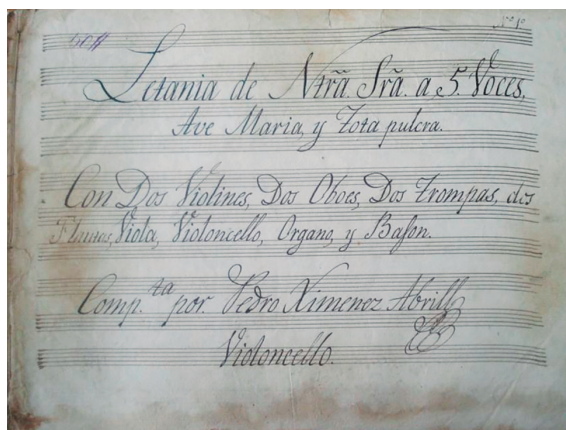 Nº 1º
Letania de Ntrã Srã. a 5. Voces,
Ave Maria, y Tota pulcra.
Con Dos Violines, Dos Oboes, Dos Trompas, dos
Flautas, Viola, Violoncello, Organo, y Bason.
Comp.ta por. Pedro Ximenez Abrill
Violoncello.